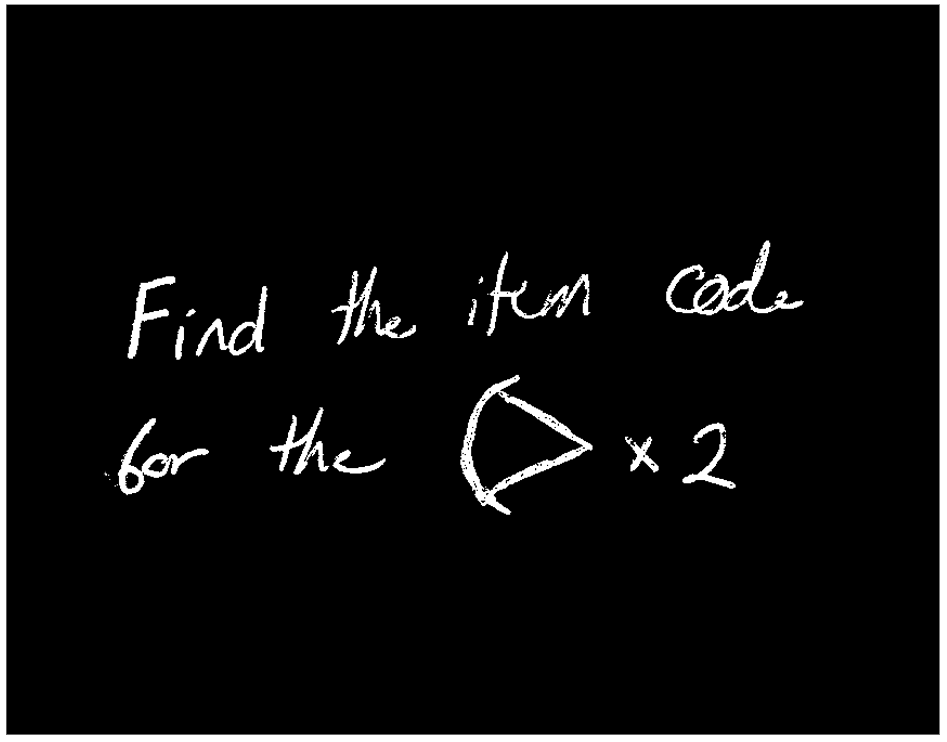 Find the item code
for the × 2